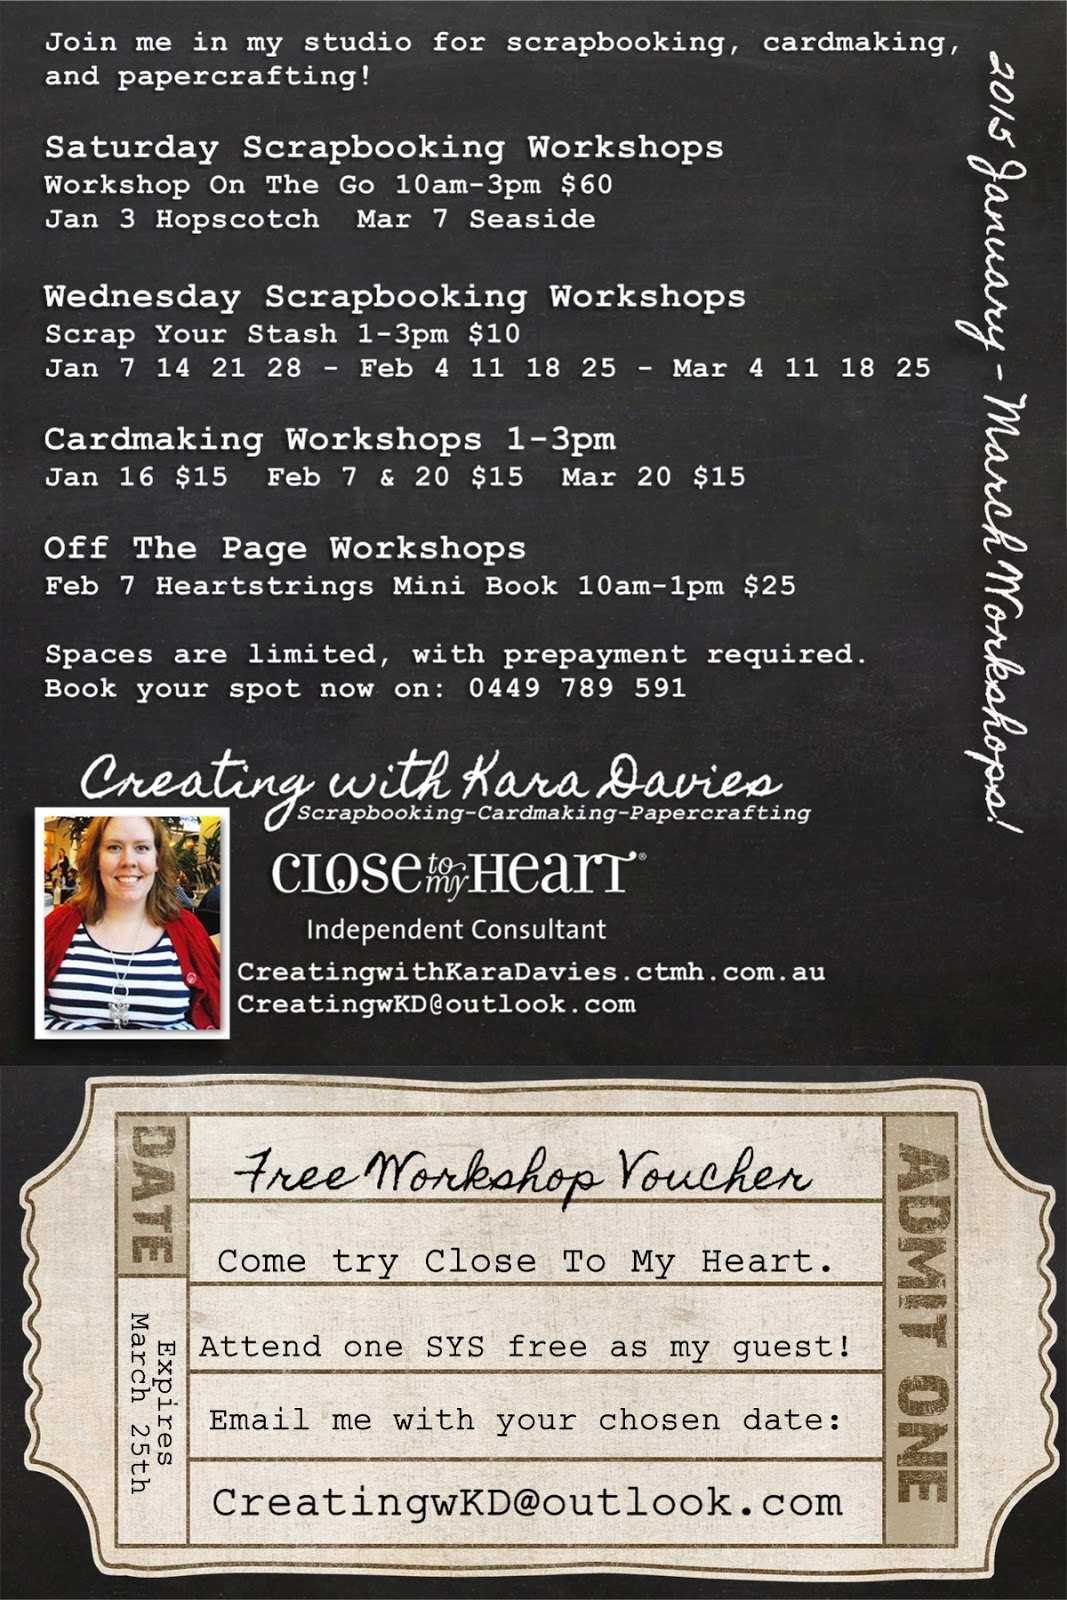 Join me in my studio for scrapbooking, cardmaking,
and papercrafting!
Saturday Scrapbooking Workshops
Workshop On The Go 10am-3pm $60
Jan 3 Hopscotch  Mar 7 Seaside
Wednesday Scrapbooking Workshops
Scrap Your Stash 1-3pm $10
Jan 7 14 21 28 - Feb 4 11 18 25 - Mar 4 11 18 25
Cardmaking Workshops 1-3pm
Jan 16 $15  Feb 7 & 20 $15  Mar 20 $15
Off The Page Workshops
Feb 7 Heartstrings Mini Book 10am-1pm $25
Spaces are limited, with prepayment required.
Book your spot now on: 0449 789 591
2015 January - March Workshops!
Creating with Kara Davies
Scrapbooking-Cardmaking-Papercrafting
CLOSE to my HEART®
Independent Consultant
CreatingwithKaraDavies.ctmh.com.au
CreatingwKD@outlook.com
DATE
Expires
March 25th
Free Workshop Voucher
Come try Close To My Heart.
Attend one SYS free as my guest!
Email me with your chosen date:
CreatingwKD@outlook.com
ADMIT ONE